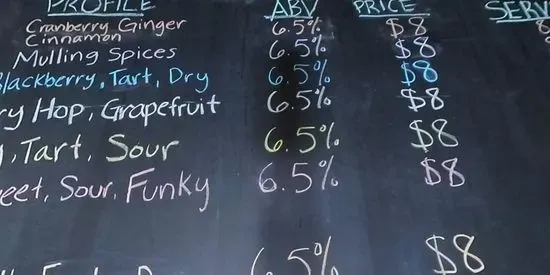 PROFILE ABV PRICE SERV
Cranberry Ginger 6.5% $8 8
Cinnamon
Mulling Spices 6.5% $8
Blackberry, Tart, Dry 6.5% $8
ry Hop, Grapefruit 6.5% $8
, Tart, Sour 6.5% $8
eet, Sour, Funky 6.5% $8
6.5% $8